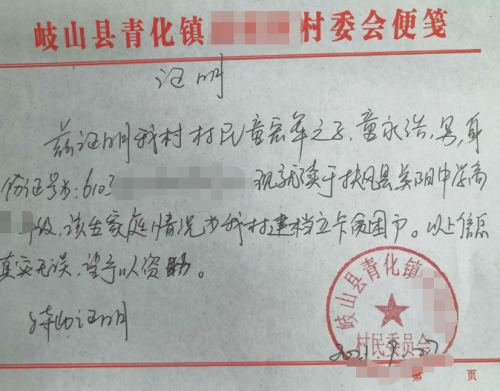 岐山县青化镇 村委会便笺
证明
兹证明我村村民童宏军之子，童永浩，男，身
份证号为：610 现就读于扶风县 阳中学高
级，该生家庭情况为我村建档立卡贫困户。以上信息
真实无误，望予以资助。
特此证明
岐山县青化镇
村民委员会
第 页